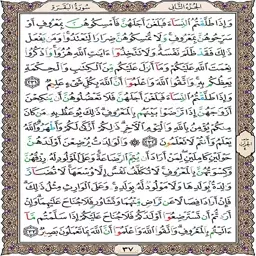 الجزء الثاني سورة البقرة
وَإِذَا طَلَّقْتُمُ النِّسَاءَ فَبَلَغْنَ أَجَلَهُنَّ فَأَمْسِكُوهُنَّ بِمَعْرُوفٍ أَوْ
سَرِّحُوهُنَّ بِمَعْرُوفٍ وَلَا تُمْسِكُوهُنَّ ضِرَارًا لِّتَعْتَدُوا وَمَن يَفْعَلْ
ذَٰلِكَ فَقَدْ ظَلَمَ نَفْسَهُ وَلَا تَتَّخِذُوا آيَاتِ اللَّهِ هُزُوًا وَاذْكُرُوا
نِعْمَتَ اللَّهِ عَلَيْكُمْ وَمَا أَنزَلَ عَلَيْكُم مِّنَ الْكِتَابِ وَالْحِكْمَةِ
يَعِظُكُم بِهِ وَاتَّقُوا اللَّهَ وَاعْلَمُوا أَنَّ اللَّهَ بِكُلِّ شَيْءٍ عَلِيمٌ ٢٣١
وَإِذَا طَلَّقْتُمُ النِّسَاءَ فَبَلَغْنَ أَجَلَهُنَّ فَلَا تَعْضُلُوهُنَّ أَن يَنكِحْنَ
أَزْوَاجَهُنَّ إِذَا تَرَاضَوْا بَيْنَهُم بِالْمَعْرُوفِ ذَٰلِكَ يُوعَظُ بِهِ مَن كَانَ
مِنكُمْ يُؤْمِنُ بِاللَّهِ وَالْيَوْمِ الْآخِرِ ذَٰلِكُمْ أَزْكَىٰ لَكُمْ وَأَطْهَرُ وَاللَّهُ
يَعْلَمُ وَأَنتُمْ لَا تَعْلَمُونَ ٢٣٢ وَالْوَالِدَاتُ يُرْضِعْنَ أَوْلَادَهُنَّ
حَوْلَيْنِ كَامِلَيْنِ لِمَنْ أَرَادَ أَن يُتِمَّ الرَّضَاعَةَ وَعَلَى الْمَوْلُودِ لَهُ رِزْقُهُنَّ
وَكِسْوَتُهُنَّ بِالْمَعْرُوفِ لَا تُكَلَّفُ نَفْسٌ إِلَّا وُسْعَهَا لَا تُضَارَّ
وَالِدَةٌ بِوَلَدِهَا وَلَا مَوْلُودٌ لَّهُ بِوَلَدِهِ وَعَلَى الْوَارِثِ مِثْلُ ذَٰلِكَ
فَإِنْ أَرَادَا فِصَالًا عَن تَرَاضٍ مِّنْهُمَا وَتَشَاوُرٍ فَلَا جُنَاحَ عَلَيْهِمَا وَإِنْ
أَرَدتُّمْ أَن تَسْتَرْضِعُوا أَوْلَادَكُمْ فَلَا جُنَاحَ عَلَيْكُمْ إِذَا سَلَّمْتُم مَّا
آتَيْتُم بِالْمَعْرُوفِ وَاتَّقُوا اللَّهَ وَاعْلَمُوا أَنَّ اللَّهَ بِمَا تَعْمَلُونَ بَصِيرٌ ٢٣٣
٣٧